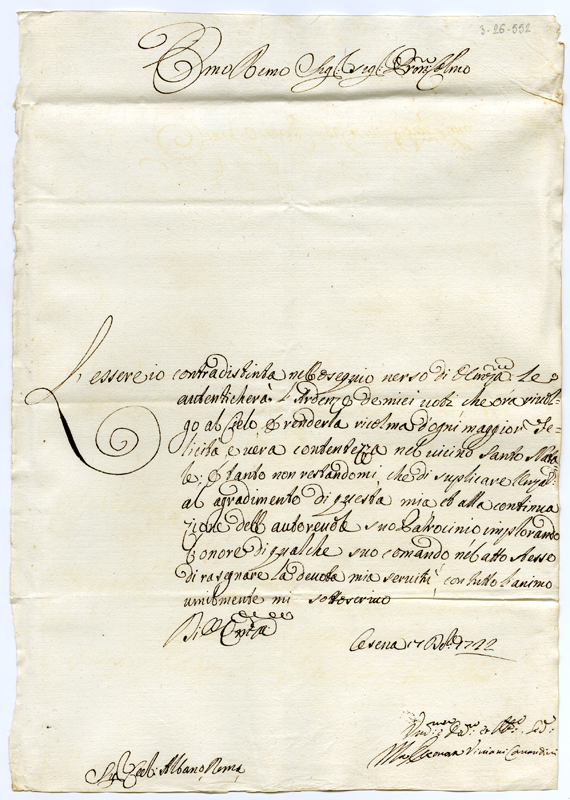 3-26-552
Emo Remo Sig.r Sig.r Pron Colmo
L'essere io contradistinta nell'osequio verso di Em.za Le
autenticherà l'Ardenza de miei voti che ora rivol-
go al Cielo per renderla ricolma d'ogni maggior Fe-
licità e vera contentezza nel vicino Santo Nata
le: per tanto non restandomi che di suplicare
al agradimento di questa mia et alla continua
zione dell'autorevole suo Patrocinio implorando
l'onore di qualche suo comando nel atto stesso
di rasegnare la devota mia servitù con tutto l'animo
umilmente mi sottoscrivo
Di
Cesena 17 Xbre 1722
Viviani
Albano Roma